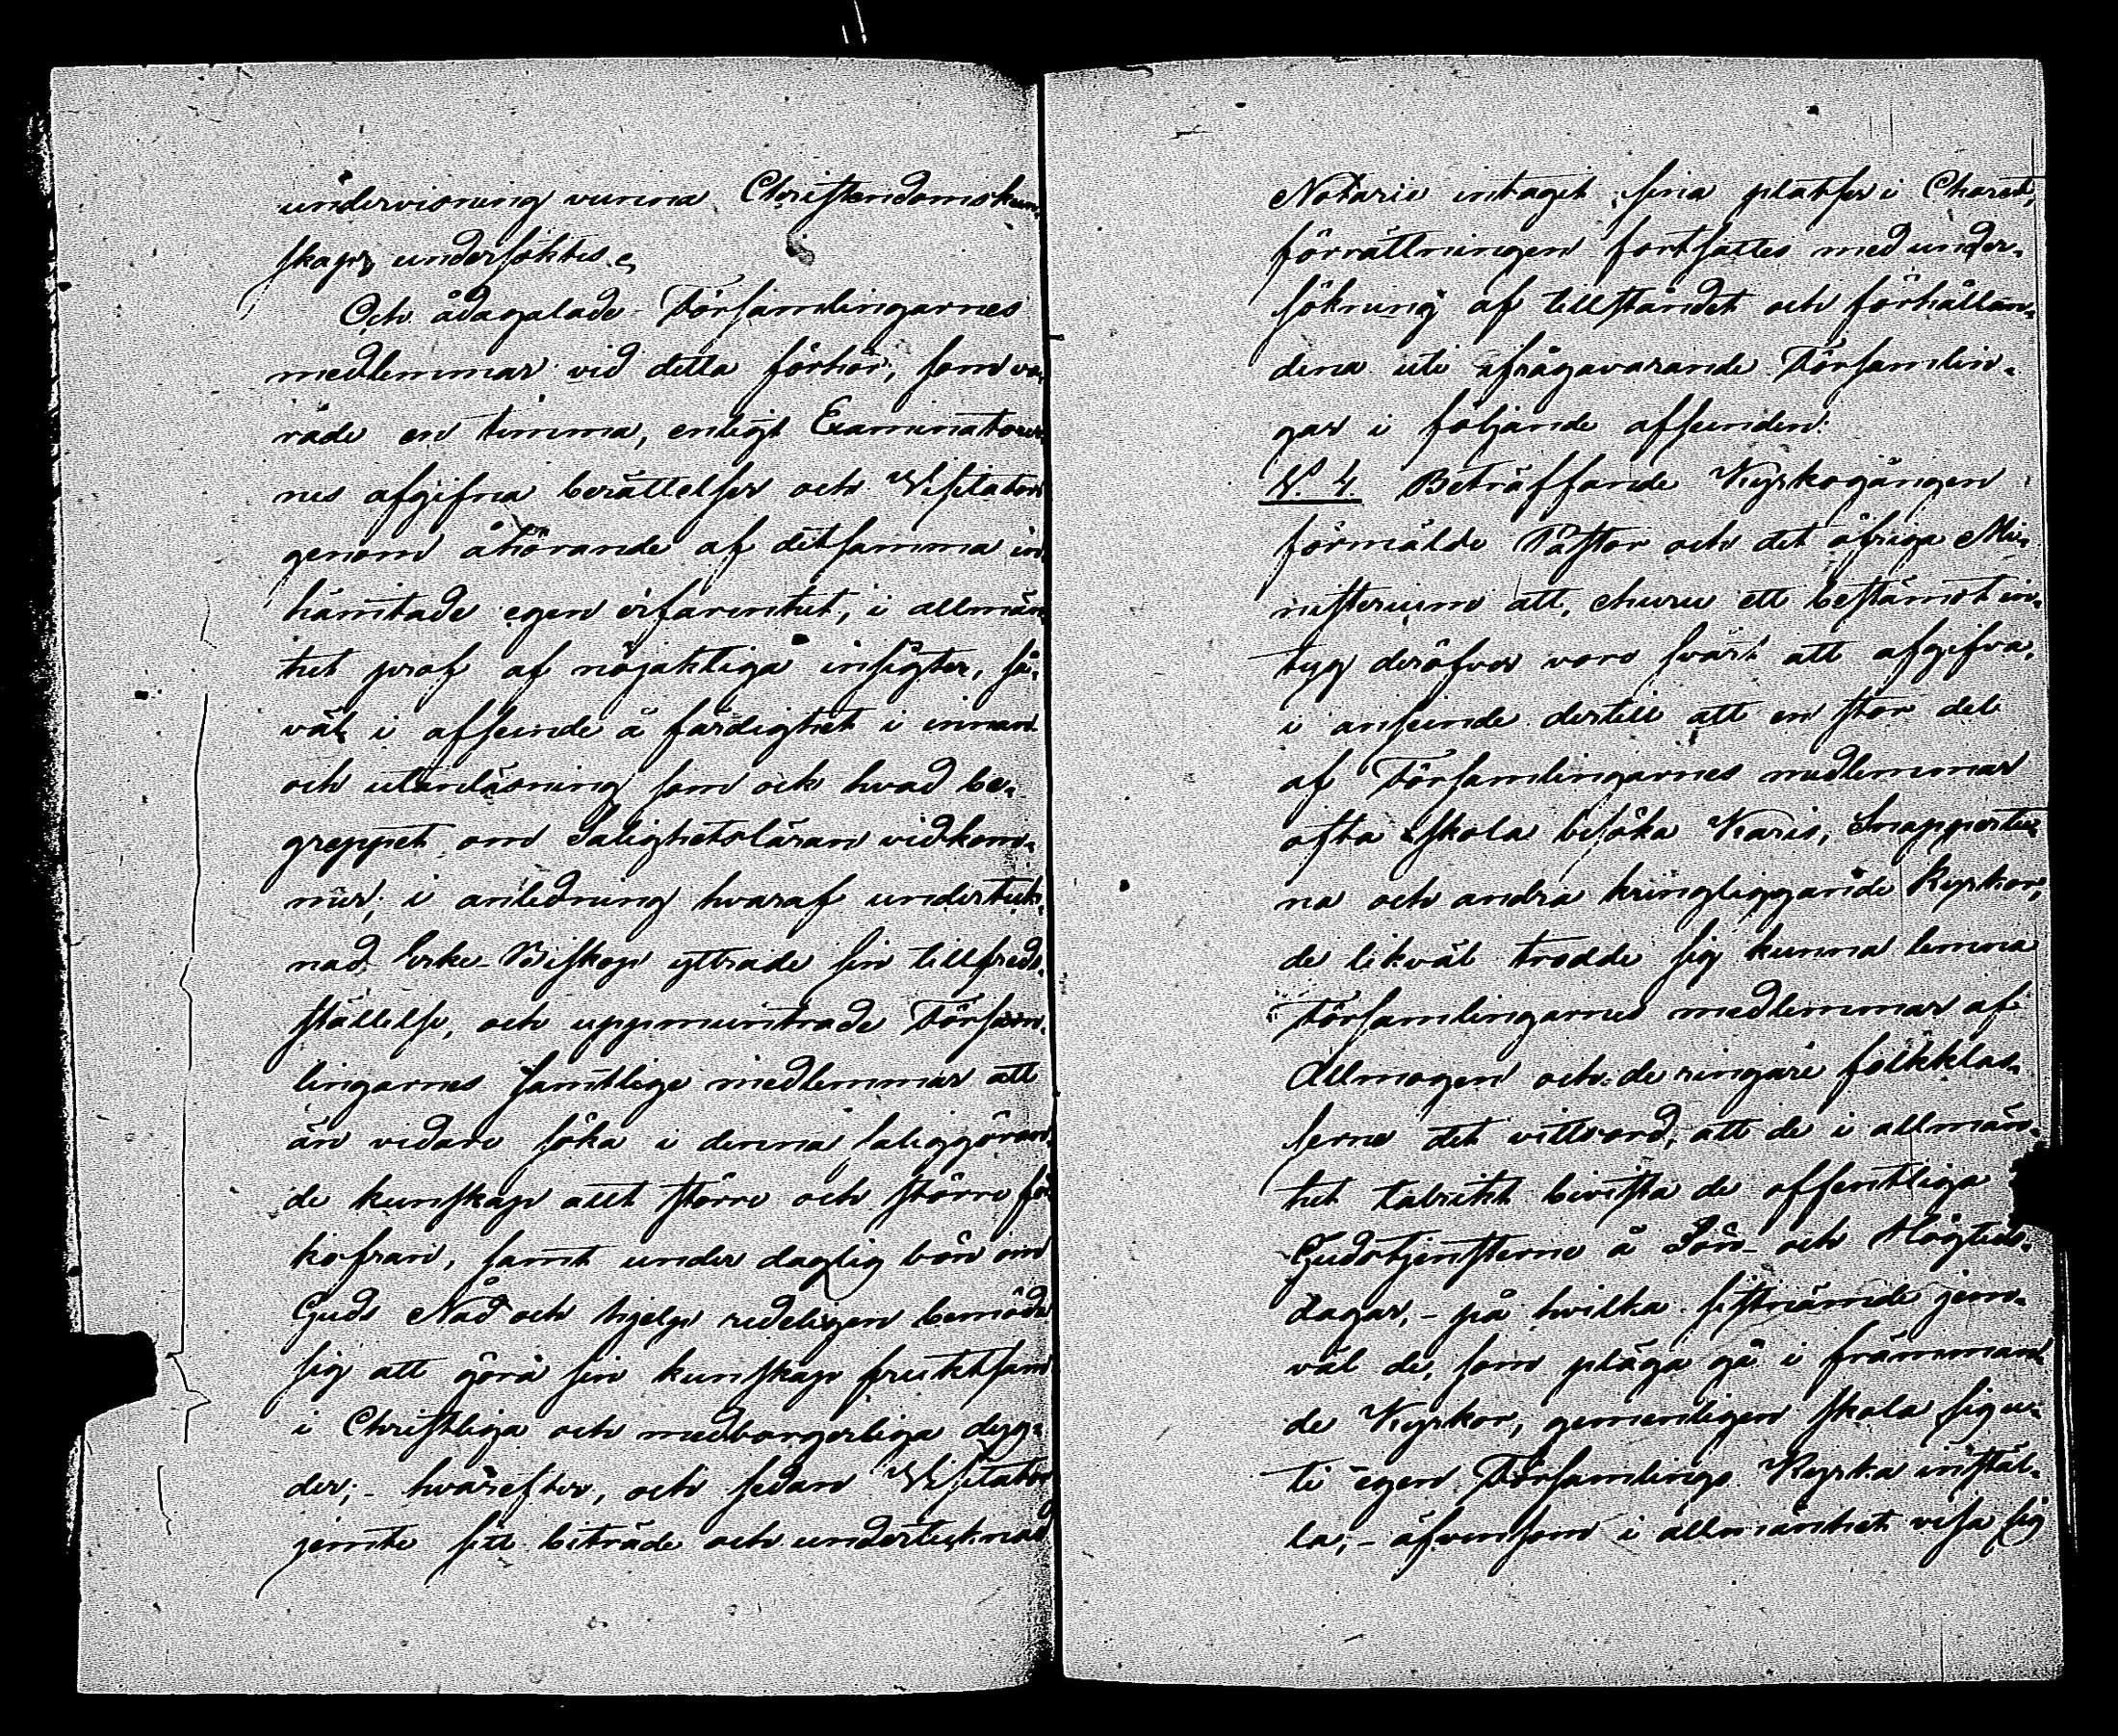 undervisning vunna Christendomskun-
skap, undersöktes.
Och ådagalade Församlingarnes
medlemmar vid detta förhör, som va-
rade en timma, enligt Examinatorer-
nes afgifna berättelser och Visitators
genom åhörande af detsamma in-
hämtade egen erfarenhet, i allmän-
het prof af nöjaktiga insigter, så-
väl i afseende å färdighet i innan-
och utanläsning som ock hvad be-
greppet om Salighetsläran vidkom-
mer; i anledning hvaraf underteck-
nad Erke-Biskop yttrade sin tillfreds-
ställelse, och uppmuntrade Försam-
lingarnes samtlige medlemmar att
än vidare söka i denna saliggöran-
de kunskap allt större och större för-
kofran, samt under daglig bön om
Guds Nåd och hjelp redeligen bemöda
sig att göra sin kunskap fruktsam
i Christliga och medborgerliga dyg-
der; - hvarefter, och sedan Visitator
jemte sitt biträde och undertecknad
Notarie intagit sina platser i Choret,
förrättningen fortsattes med under-
sökning af tillståndet och förhållan-
dena uti ifrågavarande Församlin-
gar i följande afseenden:
§. 4 Beträffande Kyrkogången
förmälde Pastor och det öfriga Mi-
nisterium att, churu ett bestämdt in-
tyg deröfver vore svårt att afgifva,
i anseende dertill att en stor del
af Församlingarnes medlemmar
ofta skola besöka Karis, Snappertu-
na och andra kringliggande Kyrkor,
de likväl trodde sig kunna lemna
Församlingarnes medlemmar af
Allmogen och de ringare folkklas-
serne det vittsord, att de i allmän-
het talrikt bevista de offentliga
Gudstjensterne å Sön- och Högtids-
dagar, - på hvilka sistnämde jem-
väl de, som pläga gå i främman-
de Kyrkor, gemenligen skola sig u-
ti egen Församlings Kyrka instäl-
la, - äfvensom i allmänhet visa sig